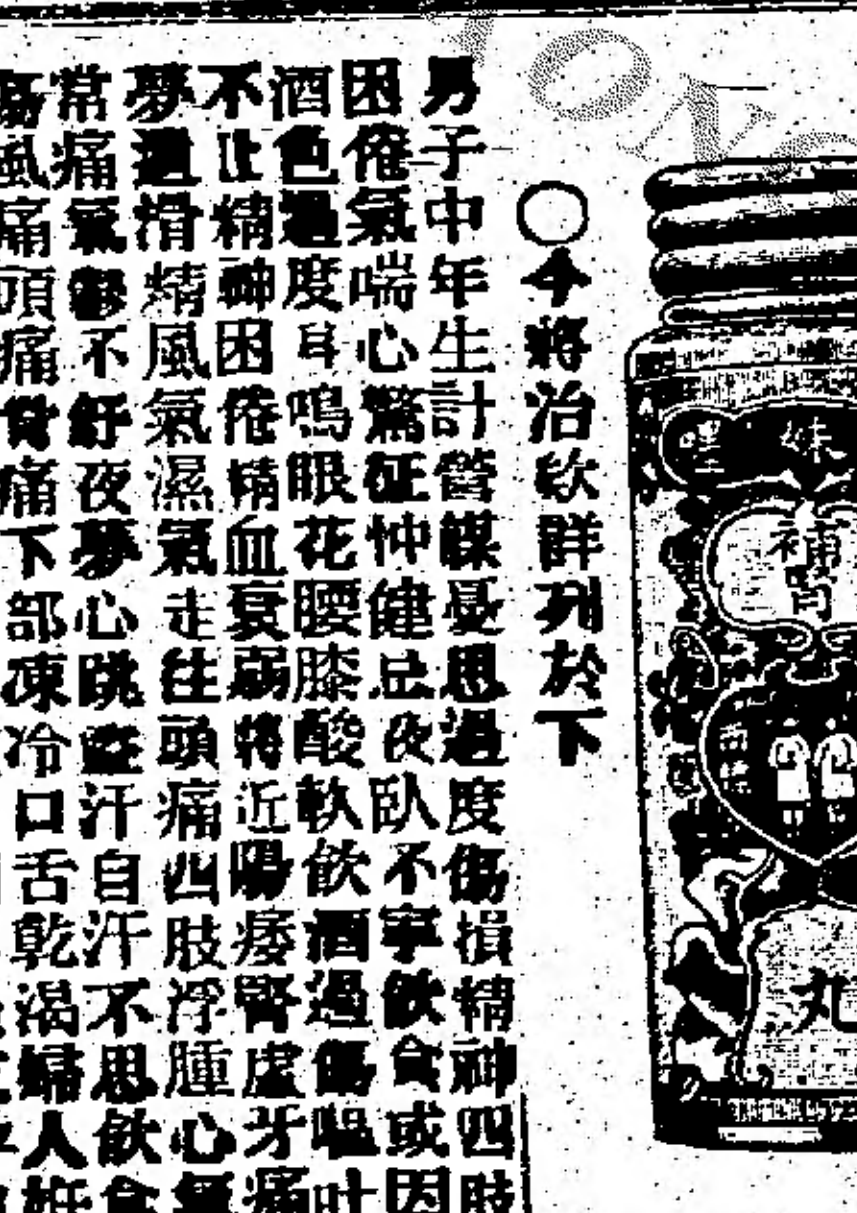 ○今將治欵群列於下
男子中年生計營謀憂思過度傷損精神四肢
困倦氣喘心驚怔忡健忘夜臥不寧飲食或因
酒色過度耳鳴眼花腰膝酸軟飲酒過傷嘔吐
不止精神困倦精血衰弱將近陽痿腎虛牙痛
夢遺滑精風氣濕氣走往頭痛四肢浮腫心氣
常痛氣鬱不舒夜夢心跳盜汗自汗不思飲食
傷風痛頭痛骨痛下部凍冷口舌乾渴婦人妊
妹
補腎
丸